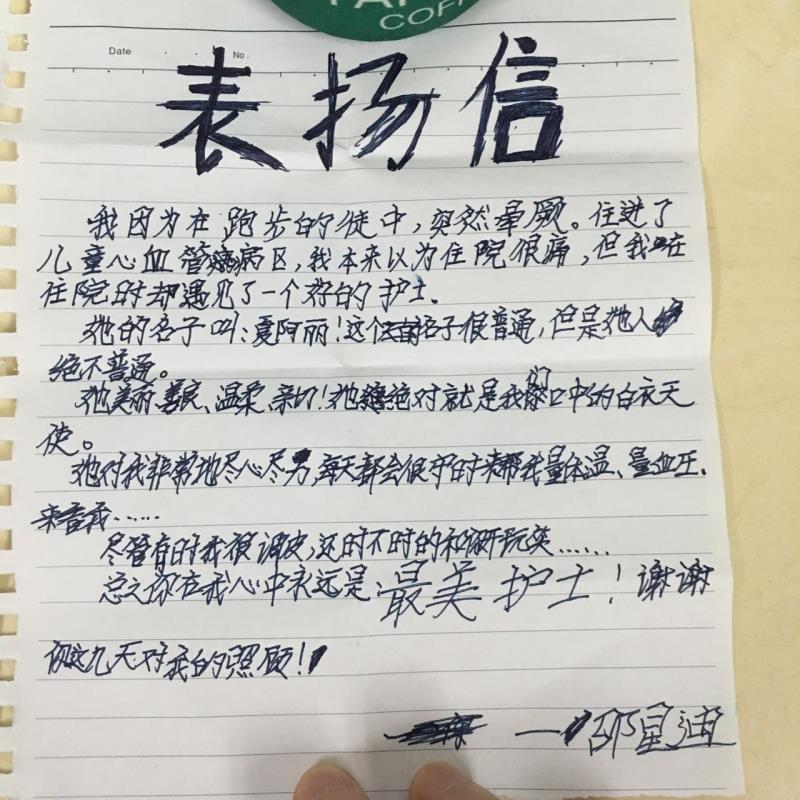 COFF
Date
No.
表扬信
我因为在跑步的徒中，突然晕厥。住进了
儿童心血管病区，我本来以为住院很痛，但我在
住院时却遇见了一个好的护士。
她的名子叫：夏阿丽！这个名子很普通，但是她人
绝不普通。
她美丽、善良、温柔、亲切！她绝对就是我们口中的白衣天
使。
她对我非常地尽心尽力，每天都会很守时来帮我量体温、量血压、
来看我……
尽管有时我很调皮，还时不时的和你开玩笑……
总之你在我心中永远是：最美护士！谢谢
你这九天对我的照顾！
——邵星迪